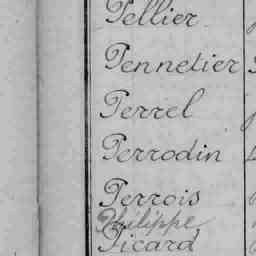 Pellier
Pennetier
Perrel
Perrodin
Perrois
Philippe
Picard